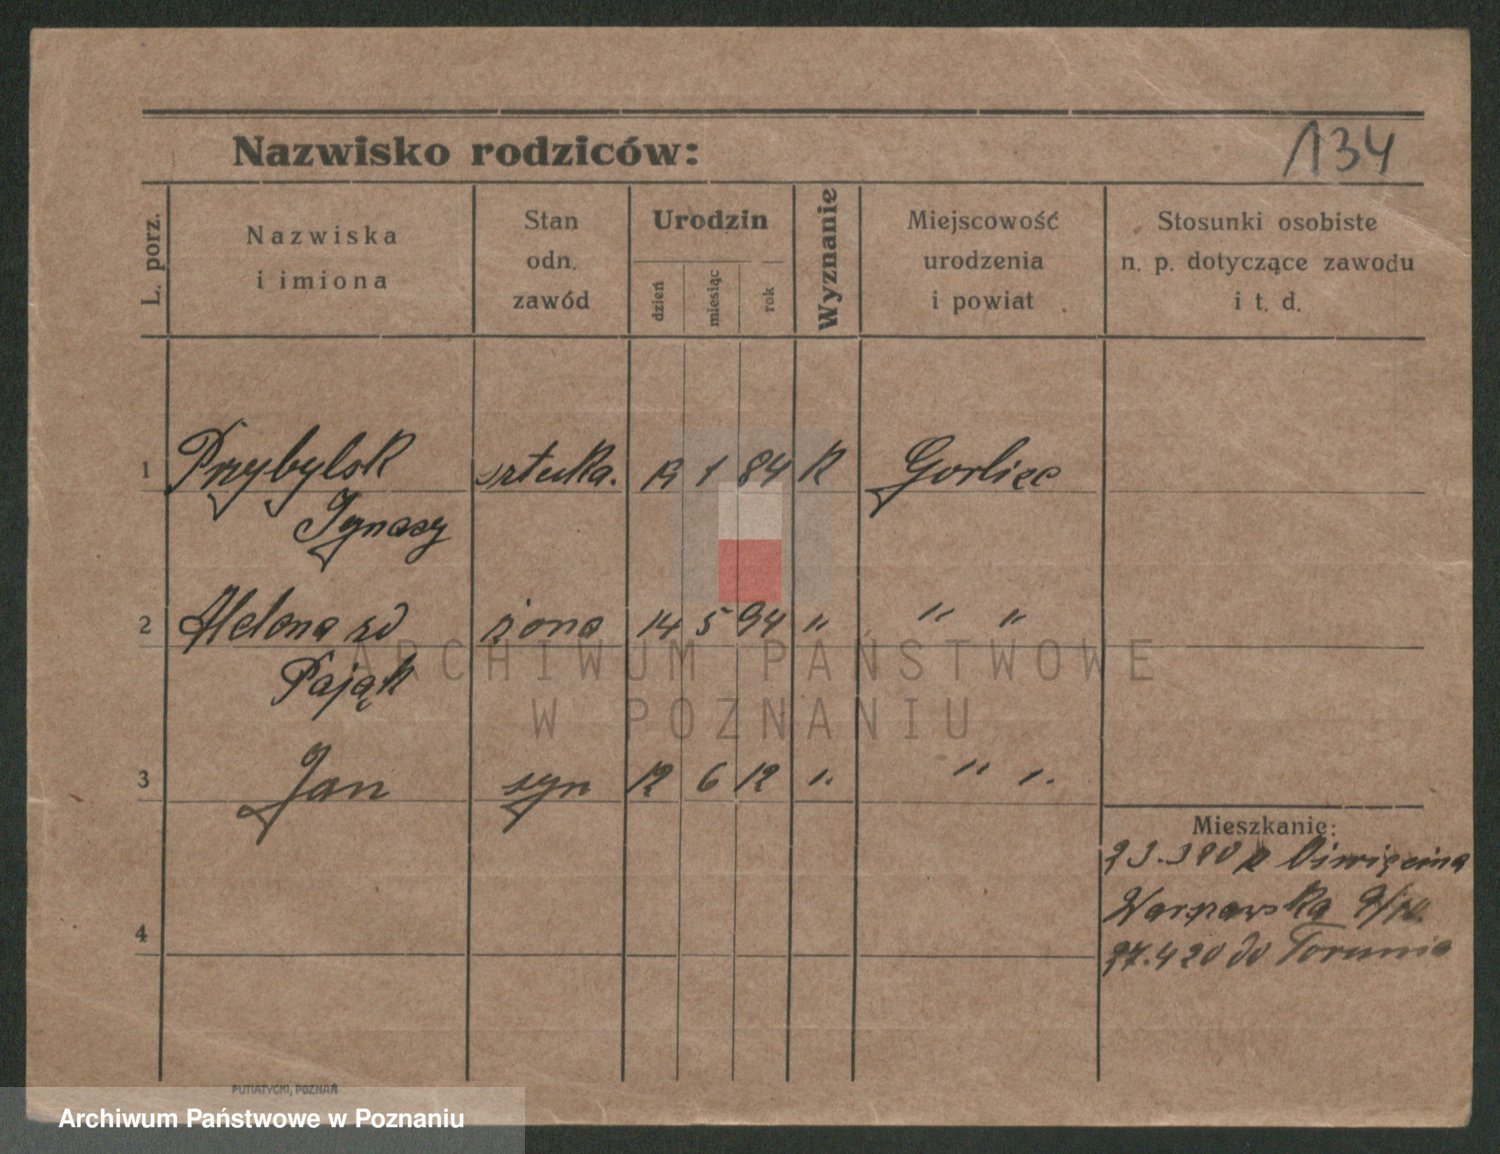 134
Nazwisko rodziców:
L. porz.
Nazwiska
i imiona
Stan
odn.
zawód
Urodzin
dzień
miesiąc
rok
Wyznanie
Miejscowość
urodzenia
i powiat
Stosunki osobiste
n. p. dotyczące zawodu
i t. d.
1 Przybylsk sztuka. 19 1 84 k Gorlice
Ignacy
2 Helena zd żona 14 5 94 " " "
Pająk
3 Jan syn 12 6 12 " " "
4
Mieszkanie:
z Oświęcima
Warszawska
27.4 20 do Torunia
ARCHIWUM PAŃSTWOWE
W POZNANIU
PUTIATYCKI, POZNAŃ
Archiwum Państwowe w Poznaniu